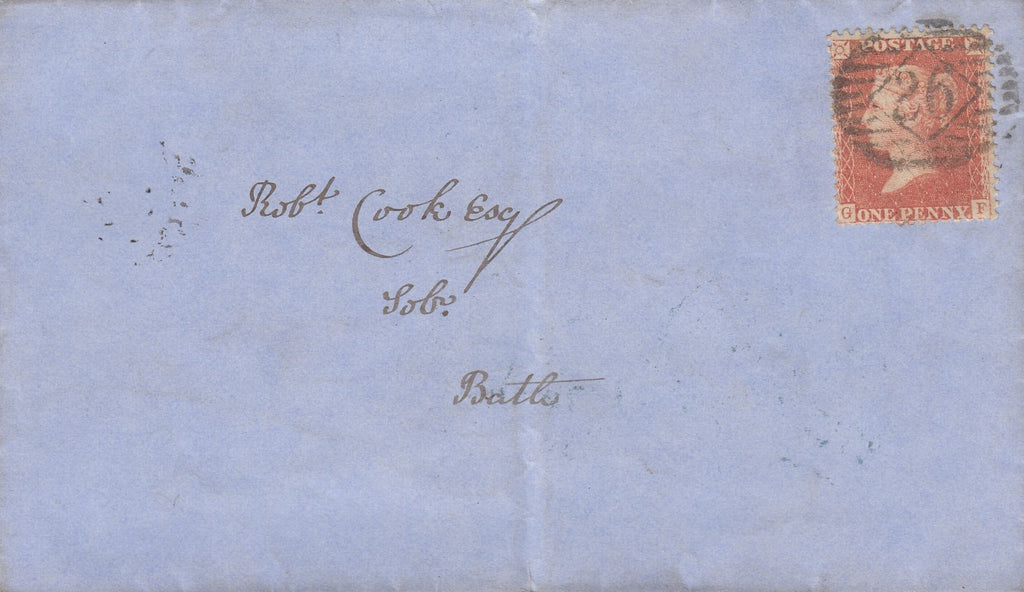 POSTAGE
26
G ONE PENNY F
Robt. Cook Esq
Solr.
Bath